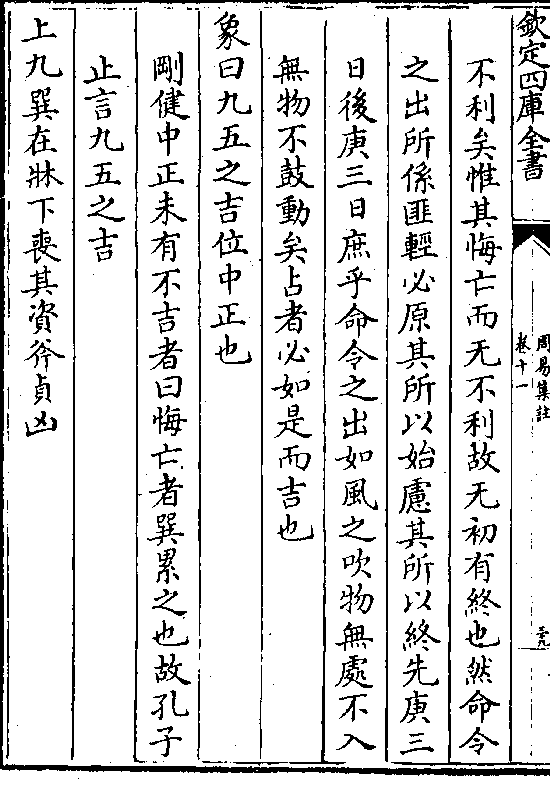 欽定四庫全書
周易集註
卷十一
不利矣惟其悔亡而无不利故无初有終也然命令
之出所係匪輕必原其所以始慮其所以終先庚三
日後庚三日庶乎命令之出如風之吹物無處不入
無物不鼓動矣占者必如是而吉也
象曰九五之吉位中正也
剛健中正未有不吉者曰悔亡者巽累之也故孔子
止言九五之吉
上九巽在牀下喪其資斧貞凶